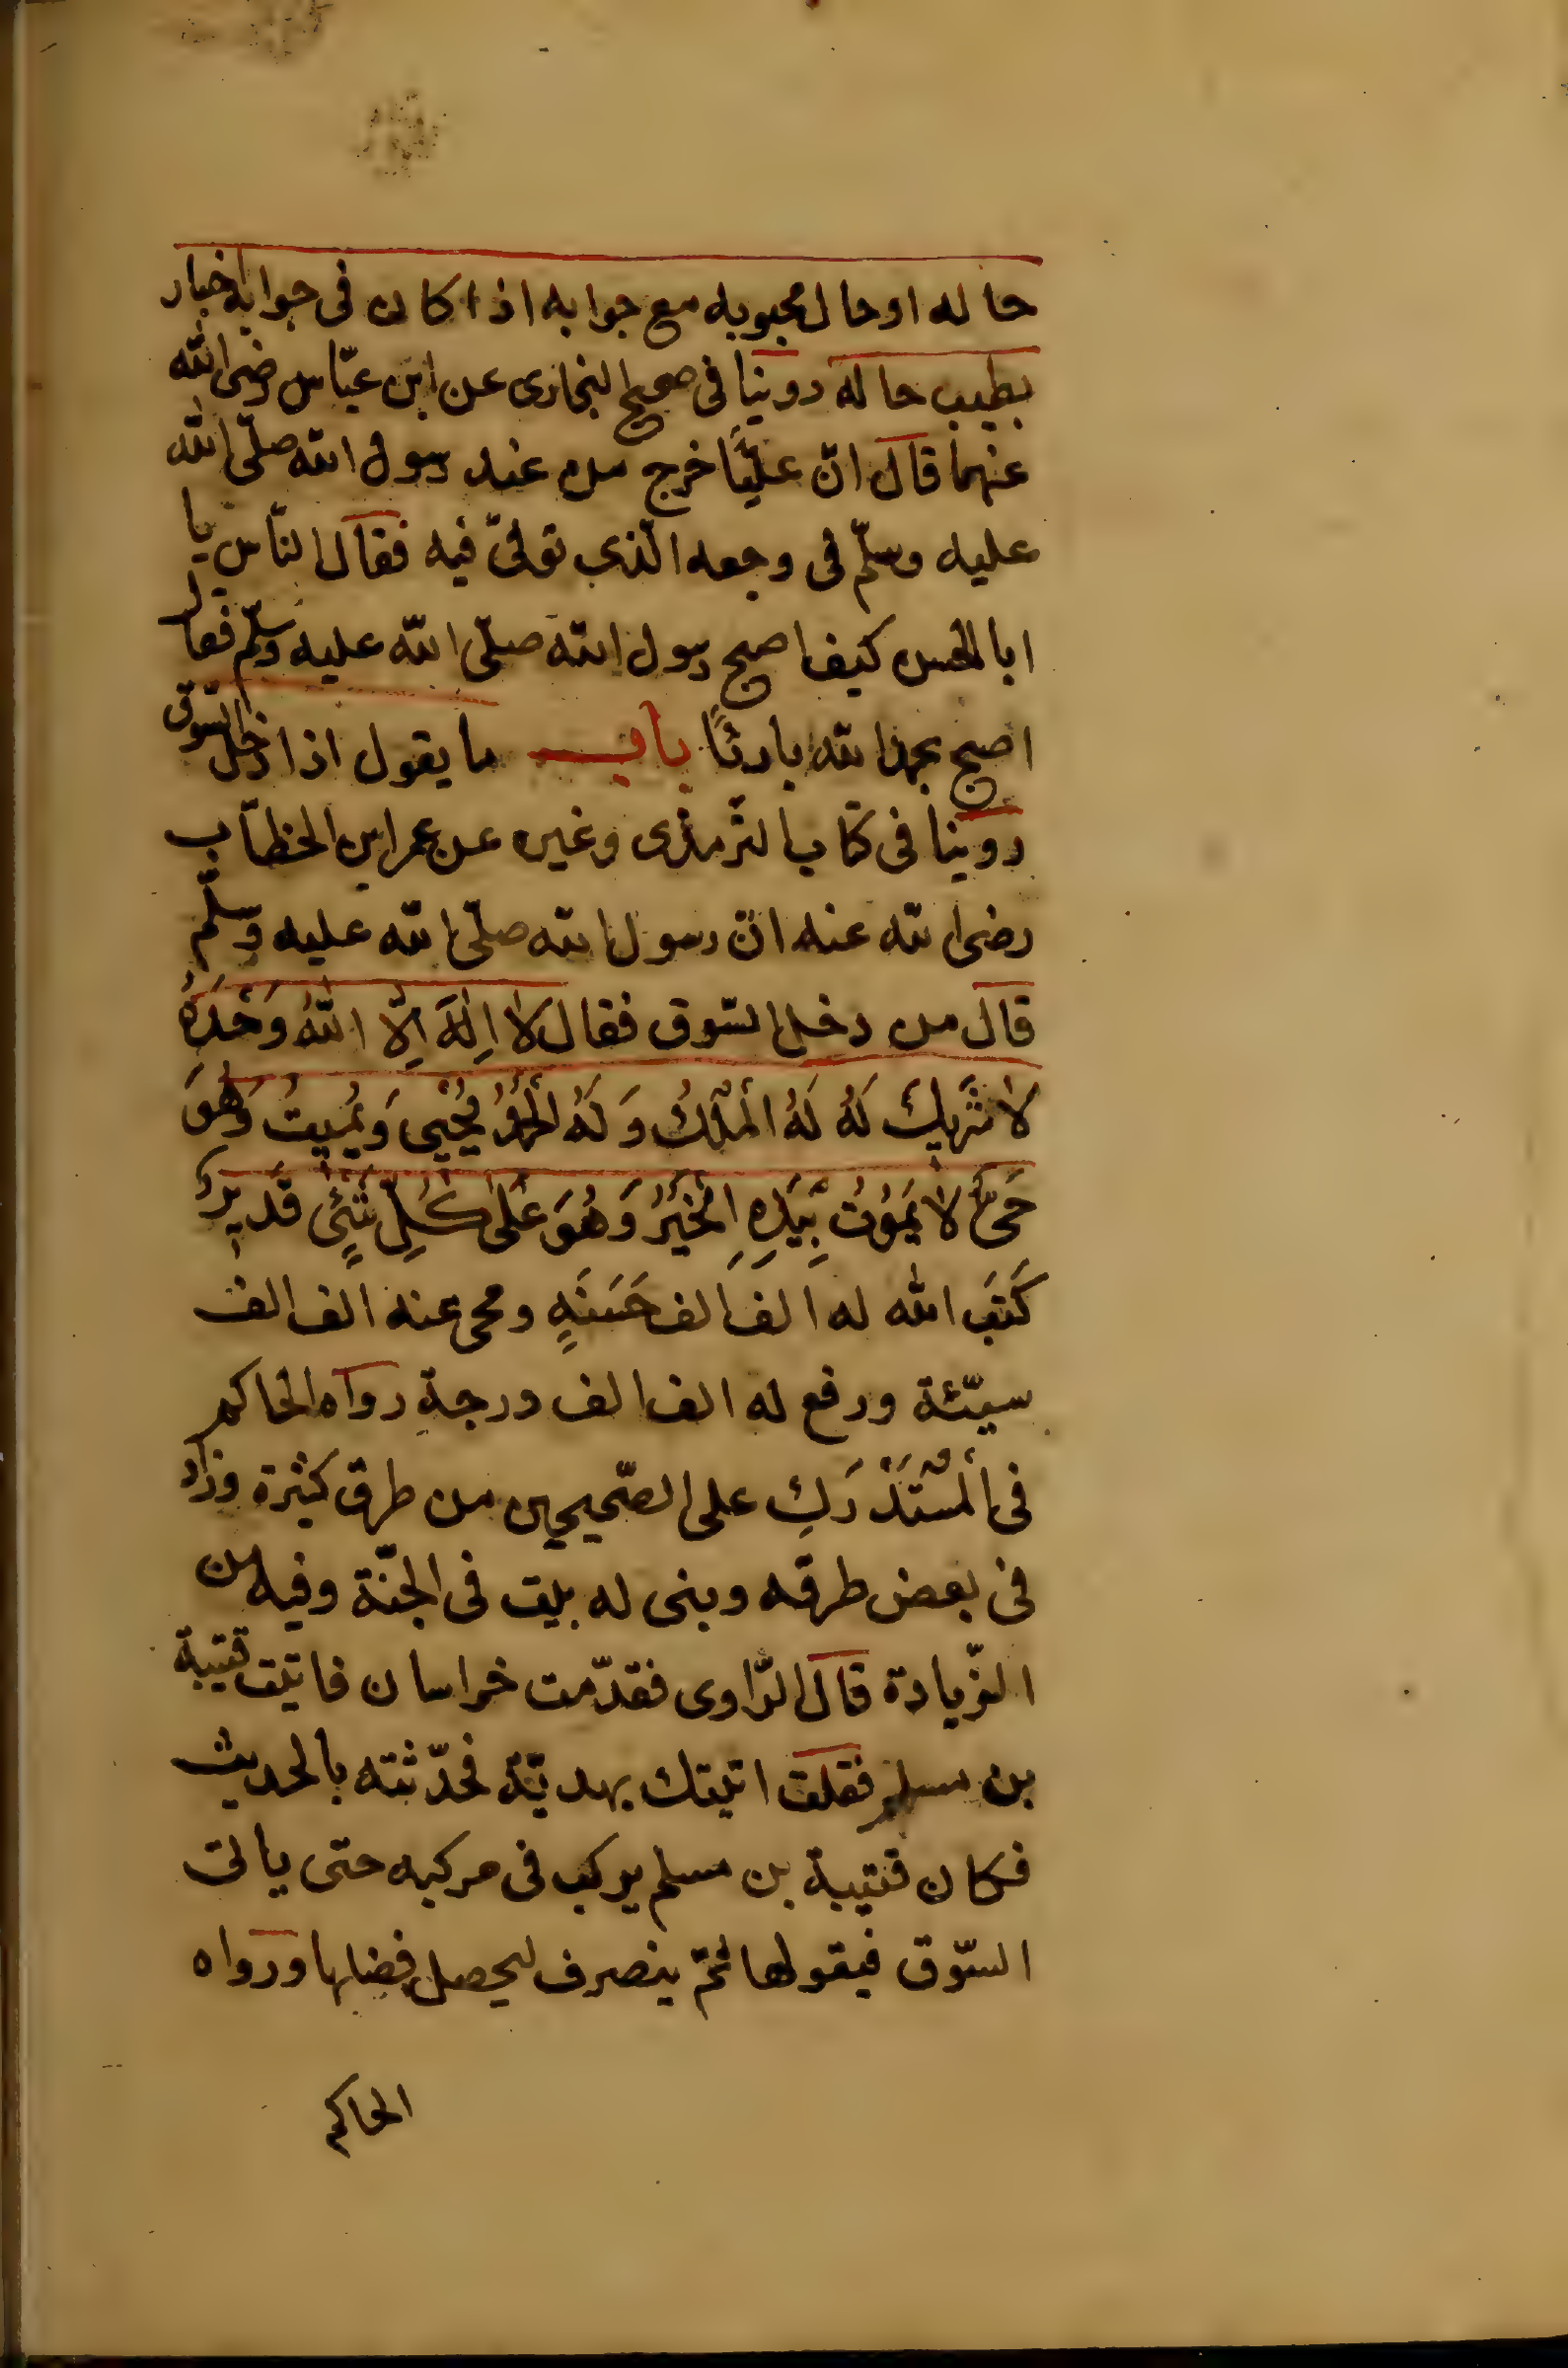 حاله او حال محبوبه مع جوابه اذا كان فى جوابه اخبار
بطيب حاله روينا فى صحيح البخارى عن ابن عبّاس رضى الله
عنهما قال انّ عليّاً خرج من عند رسول الله صلّى الله
عليه وسلّم فى وجعه الّذى توفّى فيه فقال النّاس يا
ابا الحسن كيف اصبح رسول الله صلّى الله عليه وسلّم فقال
اصبح بحمد الله بارئاً باب ما يقول اذا دخل السّوق
روينا فى كتاب الترمذى وغيره عن عمر ابن الخطّاب
رضى الله عنه انّ رسول الله صلّى الله عليه وسلّم
قال من دخل السّوق فقال لا اِلٰهَ اِلّا اللّٰهُ وَحْدَهُ
لَا شَرِيكَ لَهُ لَهُ الْمُلْكُ وَلَهُ الْحَمْدُ يُحْيِى وَيُمِيتُ وَهُوَ
حَىٌّ لَا يَمُوْتُ بِيَدِهِ الْخَيْرُ وَهُوَ عَلٰى كُلِّ شَيْئٍ قَدِيرٌ
كَتَبَ الله له الف الف حَسَنَةٍ ومحى عنه الف الف
سيّئة ورفع له الف الف درجةِ رواه الحاكم
فى الْمُسْتَدْرَكِ على الصّحيحين من طرق كثيرة وزاد
فى بعض طرقه وبنى له بيت فى الجنّة وفيه من
الزّيادة قال الرّاوى فقدّمت خراسان فاتيت قتيبة
بن مسلم فقلت اتيتك بهديّة فحدّثته بالحديث
فكان قتيبة بن مسلم يركب فى مركبه حتى ياتى
السّوق فيقولها ثمّ ينصرف ليحصل فضلها ورواه
الحاكم